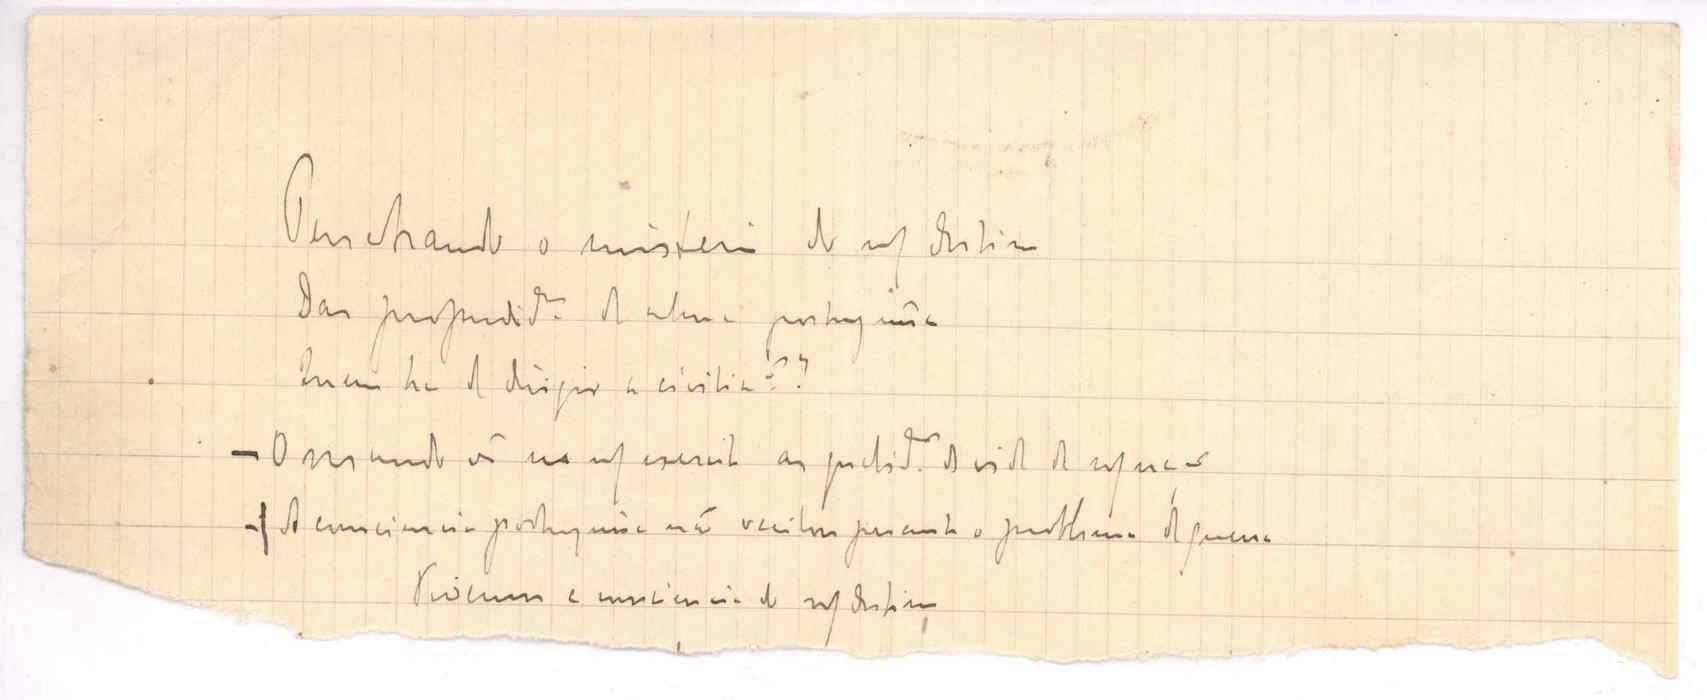 Penetrando o misterio do nosso destino
Das profundid.es da alma portuguêsa
Quem ha de dirigir a civilia.ção?
– O mundo vê no nosso exercito as da vida da nossa
– A consciencia portuguêsa não vacilou perante o problema da guerra
Vivemos a consciencia do nosso destino